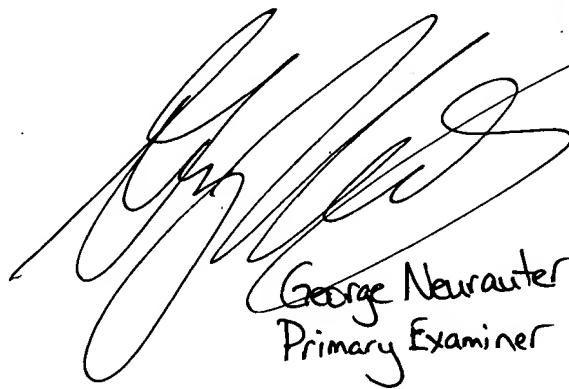 George Neurauter
Primary Examiner